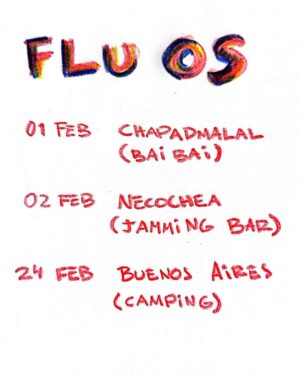 FLUOS
01 FEB CHAPADMALAL
(BAiBAi)
02 FEB NECOCHEA
(JAMMiNG BAR)
24 FEB BUENOS AiRES
(CAMPiNG)